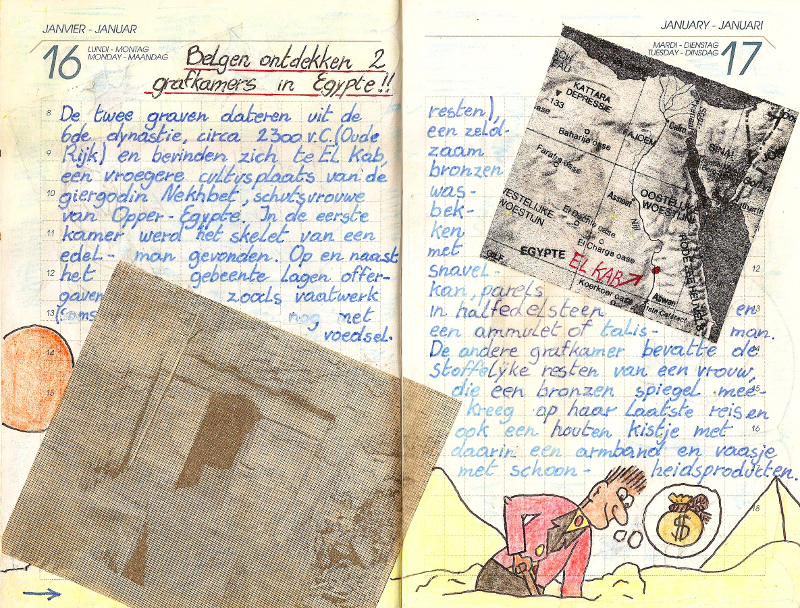 JANVIER - JANUAR
16
LUNDI - MONTAG
MONDAY - MAANDAG
Belgen ontdekken 2
grafkamers in Egypte!!
De twee graven dateren uit de
6de dynastie, circa 2300 v.C. (Oude
Rijk) en bevinden zich te El Kab,
een vroegere cultusplaats van de
giergodin Nekhbet, schutsvrouwe
van Opper-Egypte. In de eerste
kamer werd het skelet van een
edel- man gevonden. Op en naast
het gebeente lagen offer-
gaven zoals vaatwerk
(soms nog met
voedsel-
8
9
10
11
12
13
14
JANUARY - JANUARI
MARDI - DIENSTAG
TUESDAY - DINSDAG
17
resten),
een zeld-
zaam
bronzen
was-
bek-
ken
met
snavel-
kan, parels
in halfedelsteen en
een ammulet of talis- man.
De andere grafkamer bevatte de
stoffelijke resten van een vrouw,
die een bronzen spiegel mee-
kreeg op haar laatste reis en
ook een houten kistje met
daarin een armband en vaasje
met schoon- heidsproducten.
12
13
14
15
16
18
KATTARA
DEPRESSE
133
Baharija oase
Farafra oase
AJOEM
Caïro
WESTELIJKE
WOESTIJN
OOSTELIJKE
WOESTIJN
Assioet
Nijl
El Charga oase
EGYPTE
EL KAB
Koerkoer oase
Aswan
$